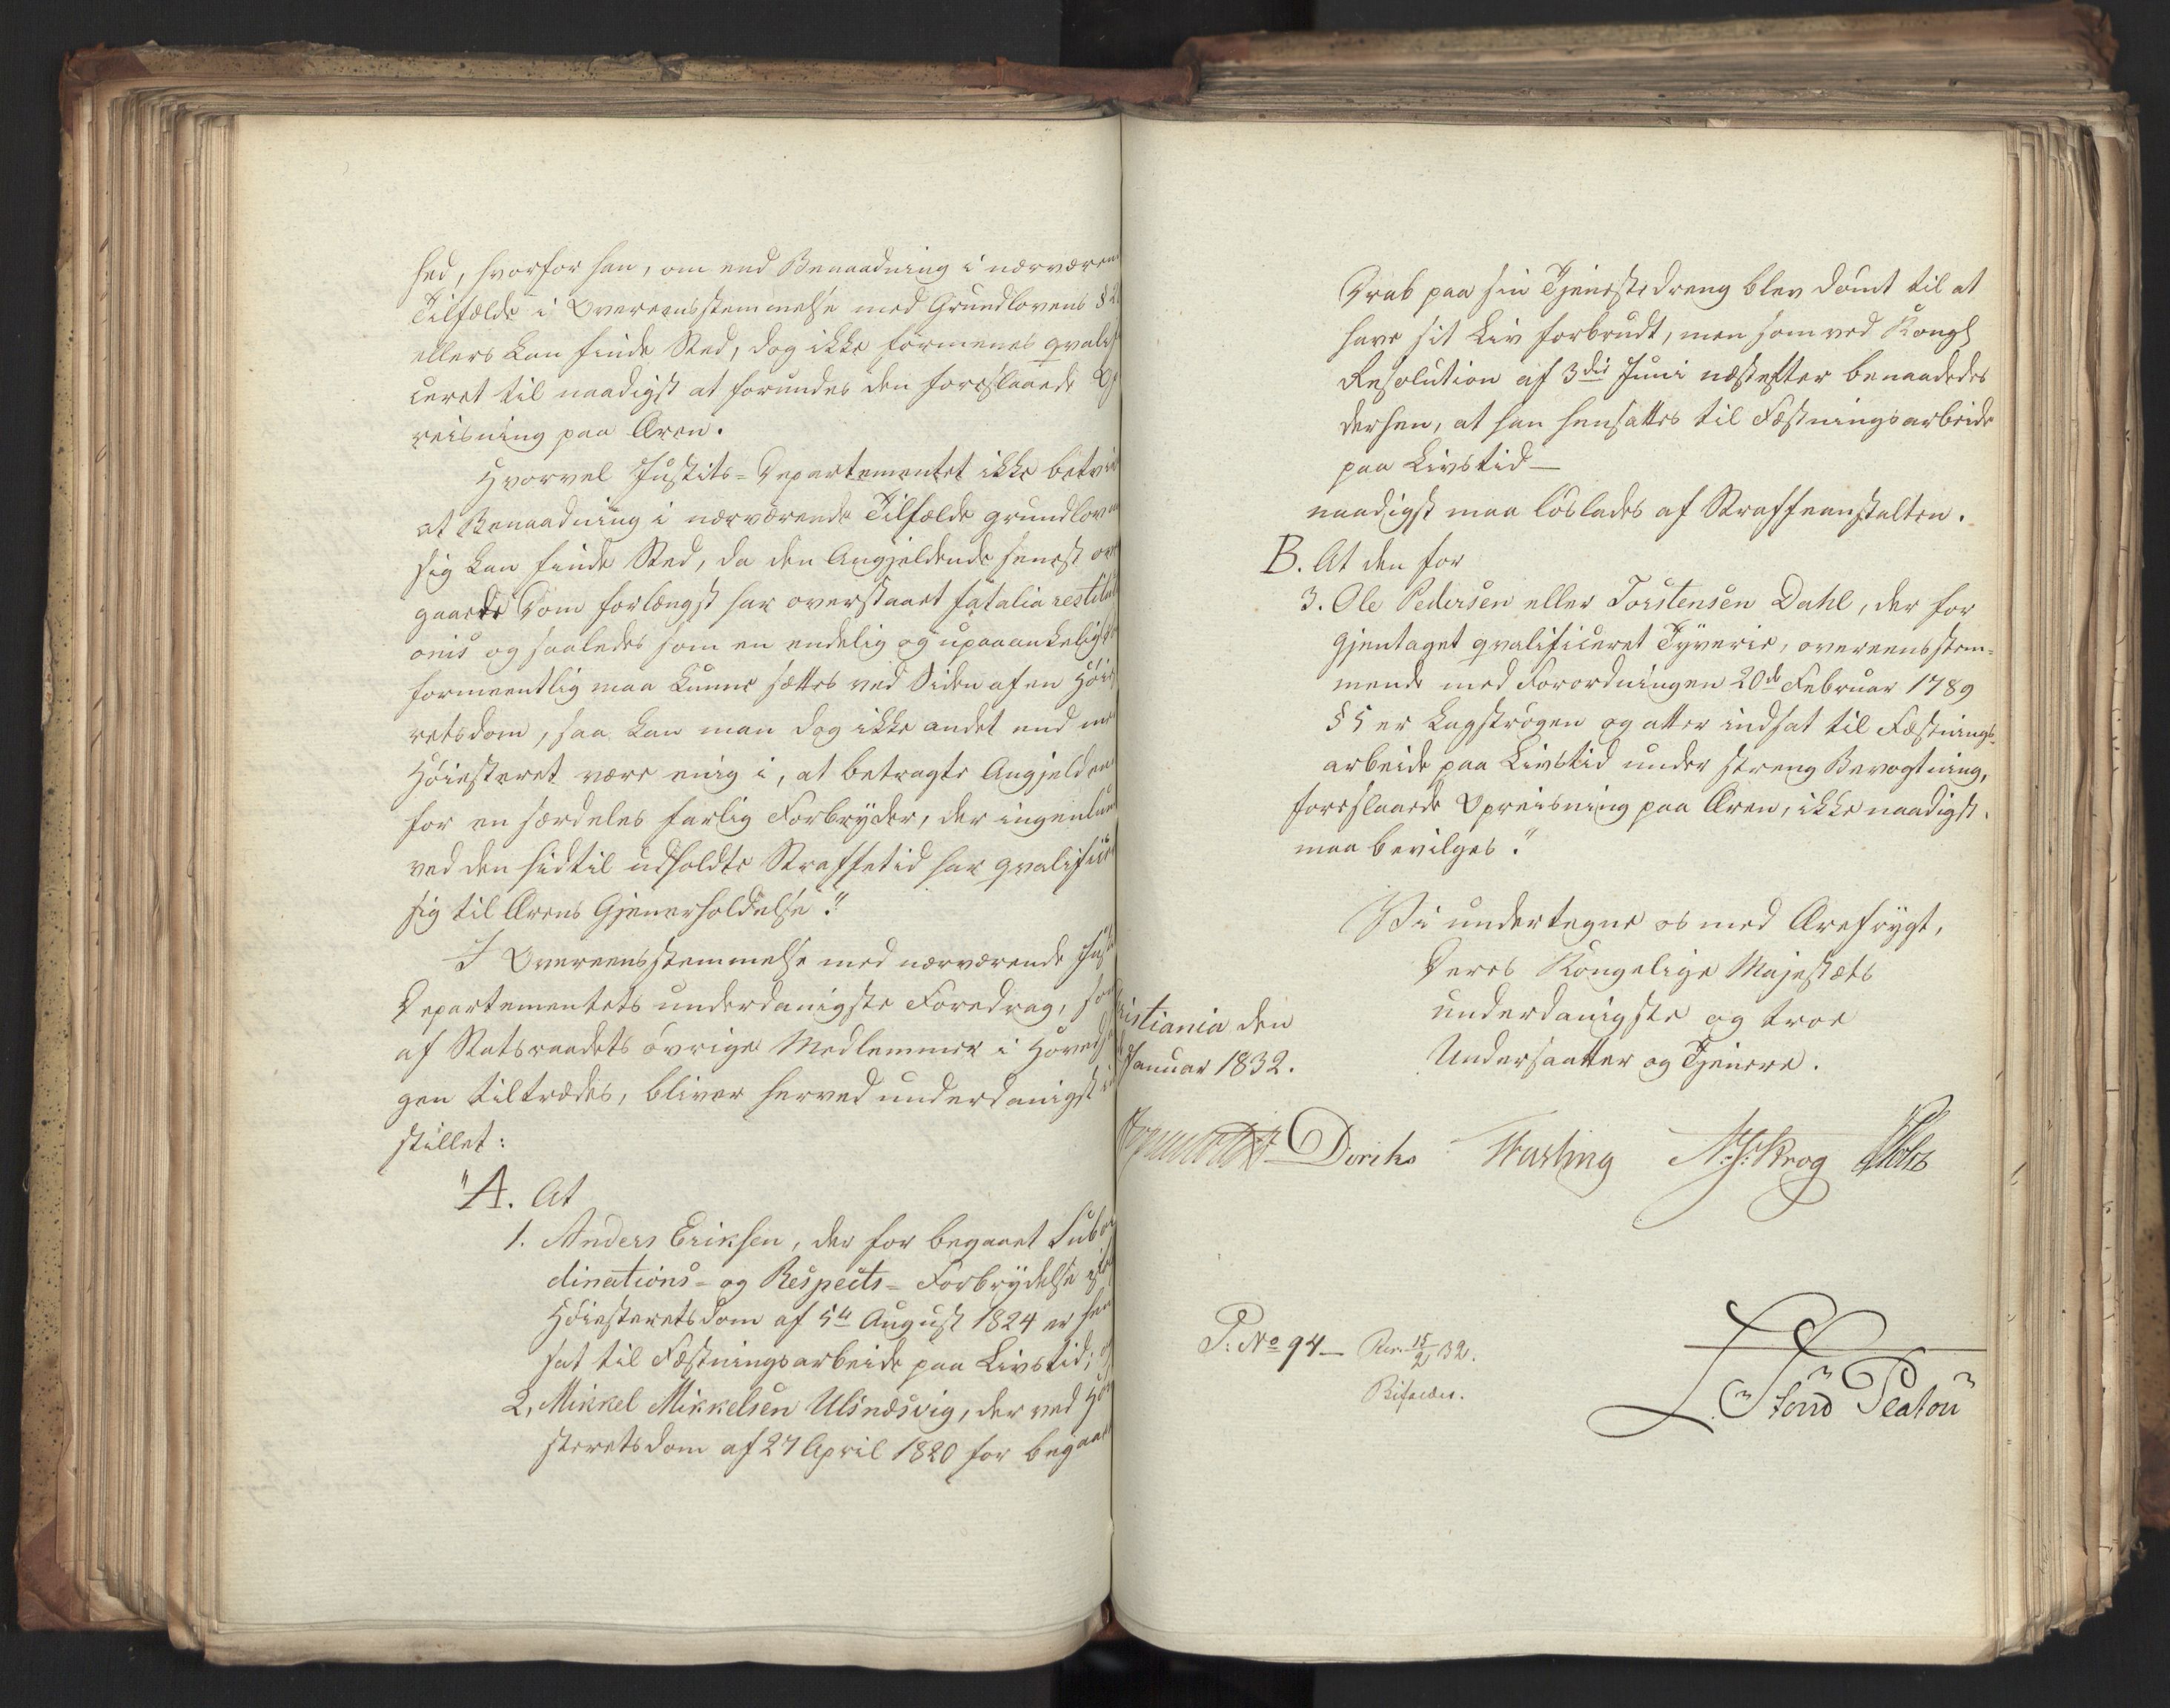 hed, hvorfor han, om end Benaadning i nærværen
Tilfælde i Overeensstemmelse med Grundlovens § 2
ellers kan finde Sted, dog ikke formenes qvalifi
ceret til naadigst at forundes den foreslaaede Op
reisning paa Æren.
Hvorvel Justits-Departementet ikke betvi
at Benaadning i nærværende Tilfælde grundlovm
sig kan finde Sted, da den Angjeldende senest over
gaaede Dom forlængst har overstaaet fatalia restituti
onis og saaledes som en endelig og upaaankelig
formeentlig maa kunne sættes ved Siden af en Høie
retsdom, saa kan man dog ikke andet end med
Høiesteret være enig i, at betragte Angjelden
for en særdeles farlig Forbryder, der ingenlun
ved den hidtil udholdte Straffetid har qvalifice
sig til Ærens Gjenerholdelse."
I Overeensstemmelse med nærværende Just
Departementets underdanigste Foredrag, som
af Statsraadets øvrige Medlemmer i Hoveds
gen tiltrædes, bliver herved underdanigst in
stillet:
"A. At
1. Anders Eriksen, der for begaaet Subor
dinations- og Respects-Forbrydelse ved
Høiesteretsdom af 5te August 1824 er hen
sat til Fæstningsarbeide paa Livstid; og
2, Mikkel Mikkelsen Ulsnæsvig, der ved Høie
steretsdom af 27 April 1820 for begaaet
Drab paa sin Tjenestedreng blev dømt til at
have sit Liv forbrudt, men som ved Kongl
Resolution af 3die Juni næstefter benaadedes
derhen, at han hensattes til Fæstningsarbeide
paa Livstid—
naadigst maa løslades af Straffeanstalten.
B. At den for
3. Ole Pedersen eller Torstensen Dahl, der for
gjentaget qvalificeret Tyverie, overeensstem-
mende med Forordningen 20de Februar 1789
§ 5 er kagstrøgen og atter indsat til Fæstnings-
arbeide paa Livstid under streng Bevogtning,
foreslaaede Opreisning paa Æren, ikke naadigst
maa bevilges."
Vi undertegne os med Ærefrygt,
Deres Kongelige Majestæts
underdanigste og troe
Undersaatter og Tjenere.
ristiania den
Januar 1832.
Diriks Fasting N: J: Krog
P: No 94— Res. 15/2 32.
Bifaldes.